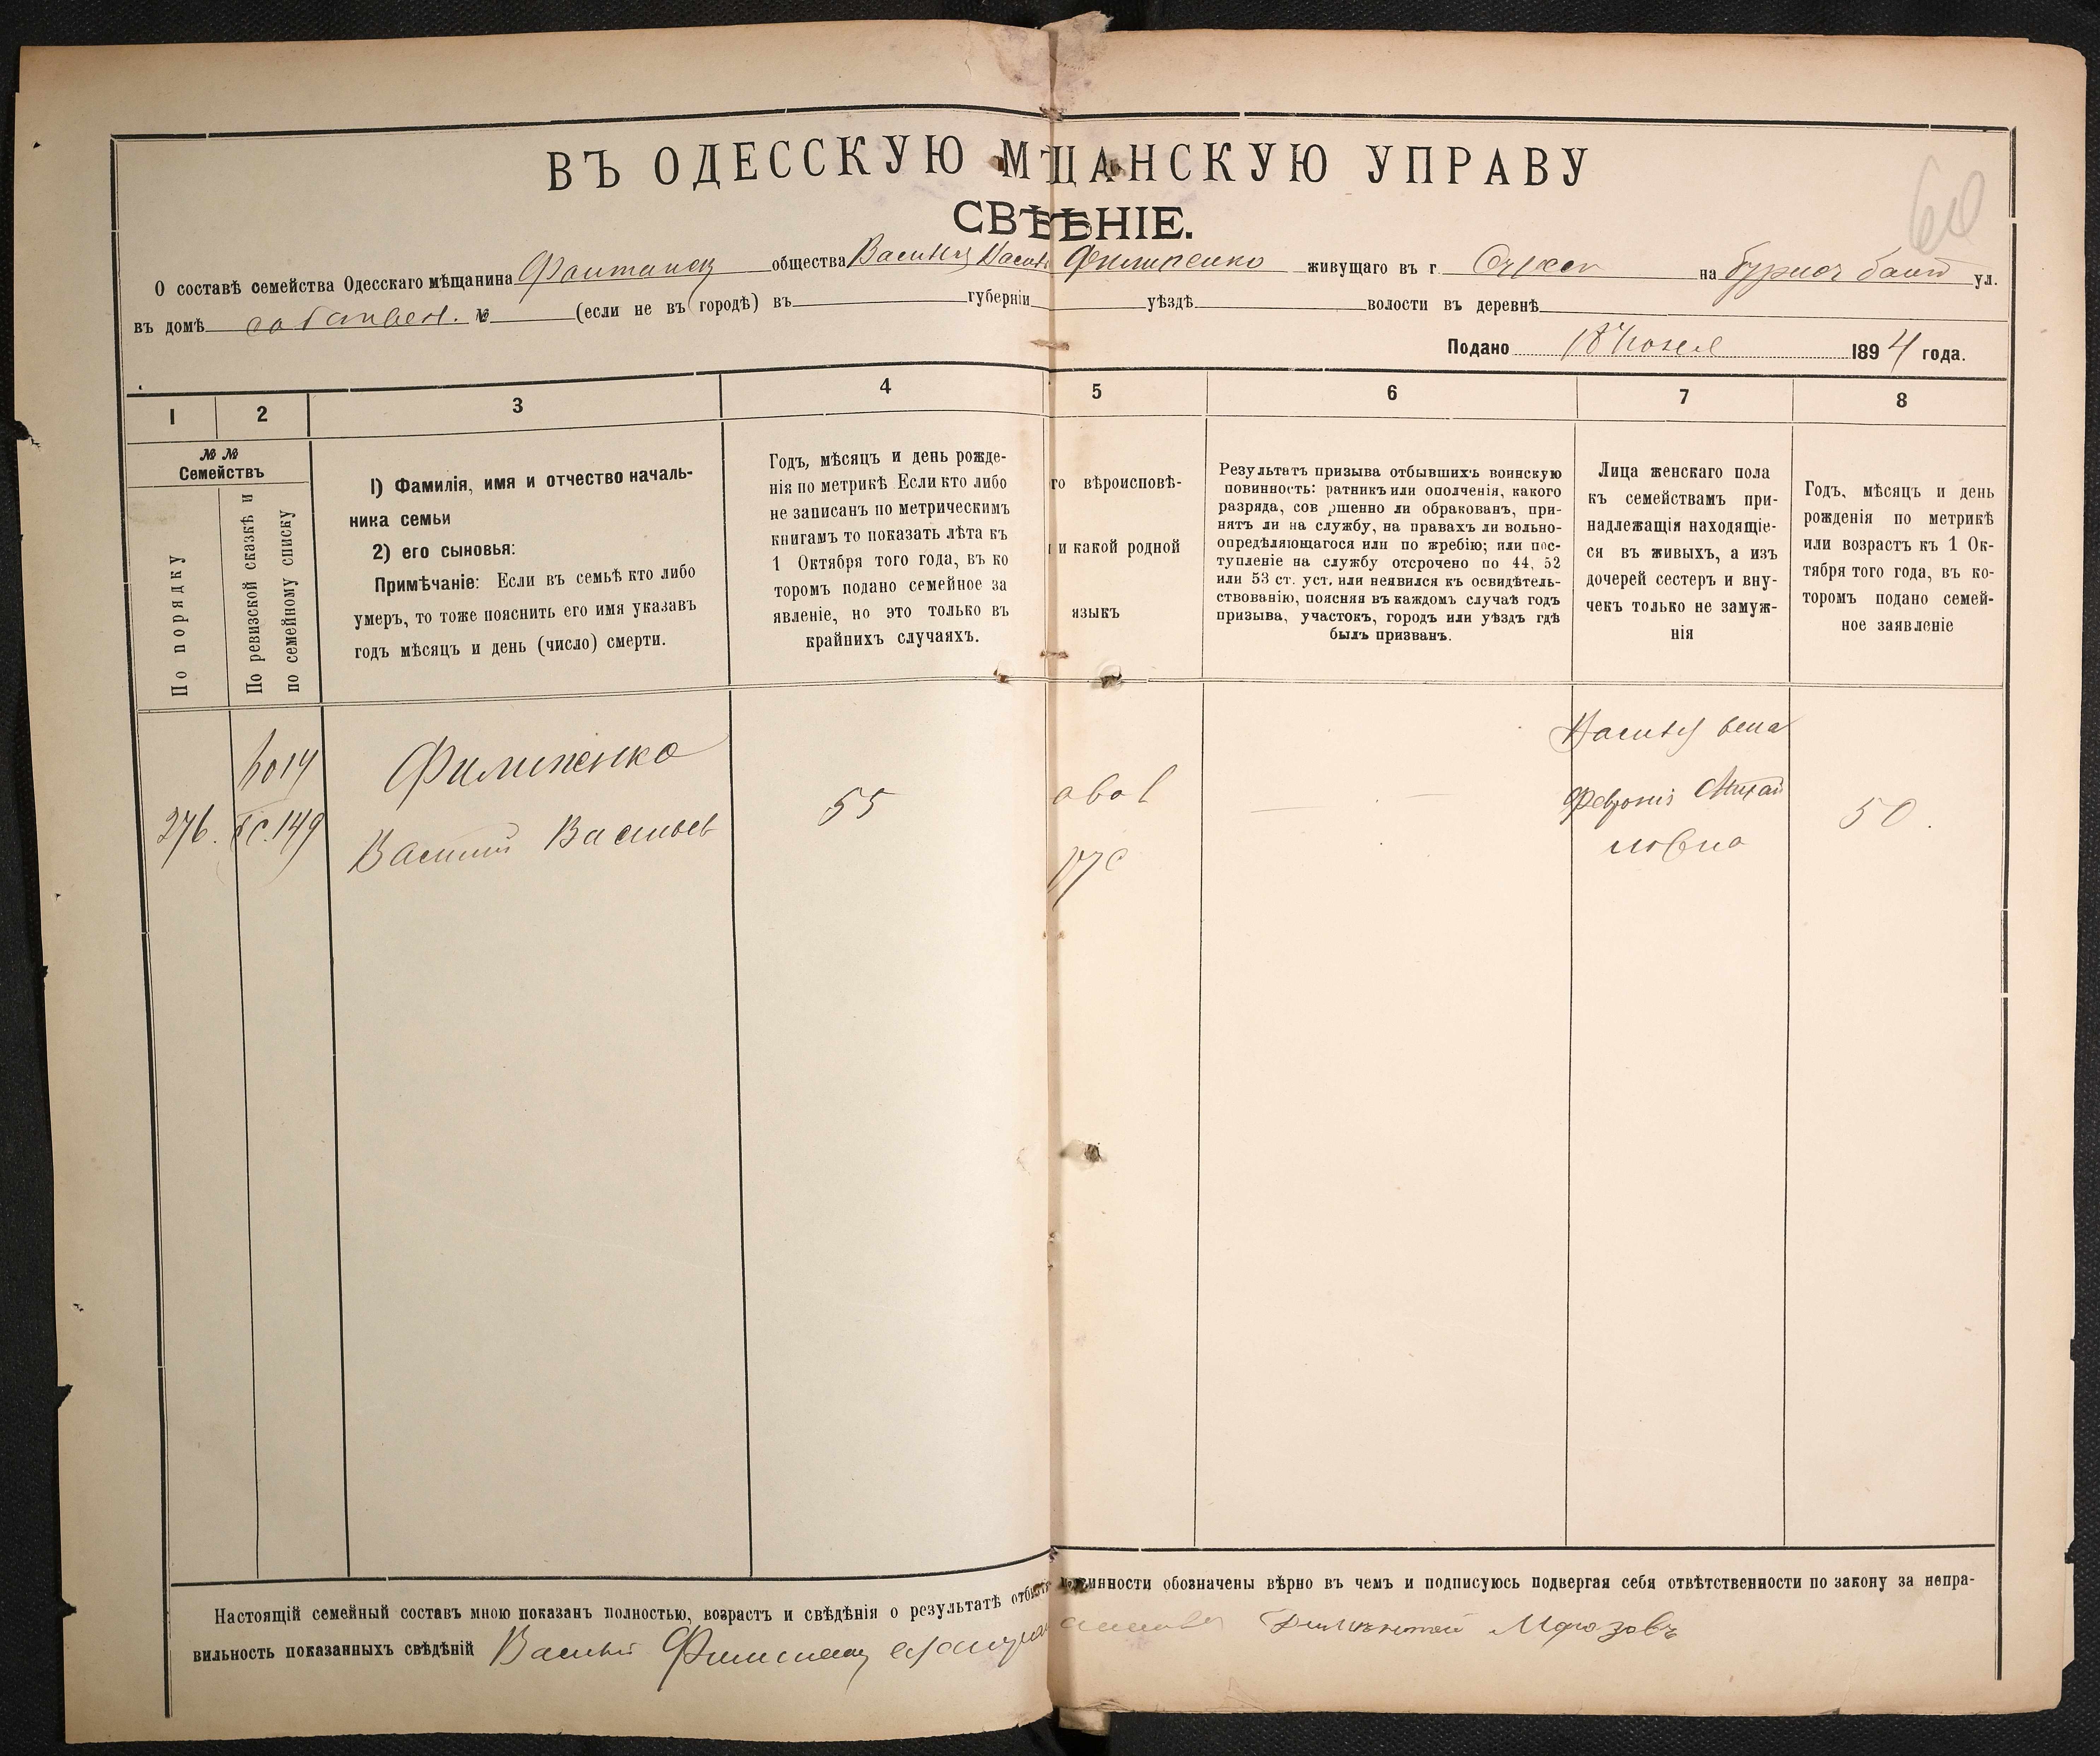 60
ВЪ ОДЕССКУЮ МѢЩАНСКУЮ УПРАВУ
СВѢѢНІЕ.
О составѣ семейства Одесскаго мѣщанина Фонтанск общества Василія Васил Филипенко живущаго въ г. на ул.
въ домѣ № (если не въ городѣ) въ губерніи уѣздѣ волости въ деревнѣ
Подано 18 Іюня 1894 года.
1 2 3 4 5 6 7 8
№ №
Семействъ
По порядку
По ревизской сказкѣ и
по семейному списку
1) Фамилія, имя и отчество началь-
ника семьи
2) его сыновья:
Примѣчаніе: Если въ семьѣ кто либо
умеръ, то тоже пояснить его имя указавъ
годъ мѣсяцъ и день (число) смерти.
Годъ, мѣсяцъ и день рожде-
нія по метрикѣ Если кто либо
не записанъ по метрическимъ
книгамъ то показать лѣта къ
1 Октября того года, въ ко
торомъ подано семейное за
явленіе, но это только въ
крайнихъ случаяхъ.
го вѣроисповѣ-
и какой родной
языкъ
Результатъ призыва отбывшихъ воинскую
повинность: ратникъ или ополченія, какого
разряда, сов ршенно ли обракованъ, при-
нятъ ли на службу, на правахъ ли вольно-
опредѣляющагося или по жребію; или пос-
тупленіе на службу отсрочено по 44, 52
или 53 ст. уст. или неявился къ освидѣтель-
ствованію, поясняя въ каждомъ случаѣ годъ
призыва, участокъ, городъ или уѣздъ гдѣ
былъ призванъ.
Лица женскаго пола
къ семействамъ при-
надлежащія находящіе-
ся въ живыхъ, а изъ
дочерей сестеръ и вну-
чекъ только не замуж-
нія
Годъ, мѣсяцъ и день
рожденія по метрикѣ
или возрастъ къ 1 Ок-
тября того года, въ ко-
торомъ подано семей-
ное заявленіе
Филипенко
Василій Васильев
276. 149
55
рус
Василія жена
Февронія Михай
ловна
50.
Настоящій семейный составъ мною показанъ полностью, возрастъ и свѣдѣнія о результатѣ отбыт повинности обозначены вѣрно въ чемъ и подписуюсь подвергая себя отвѣтственности по закону за непра-
вильность показанныхъ свѣдѣній Василій Филипенко Морозовъ